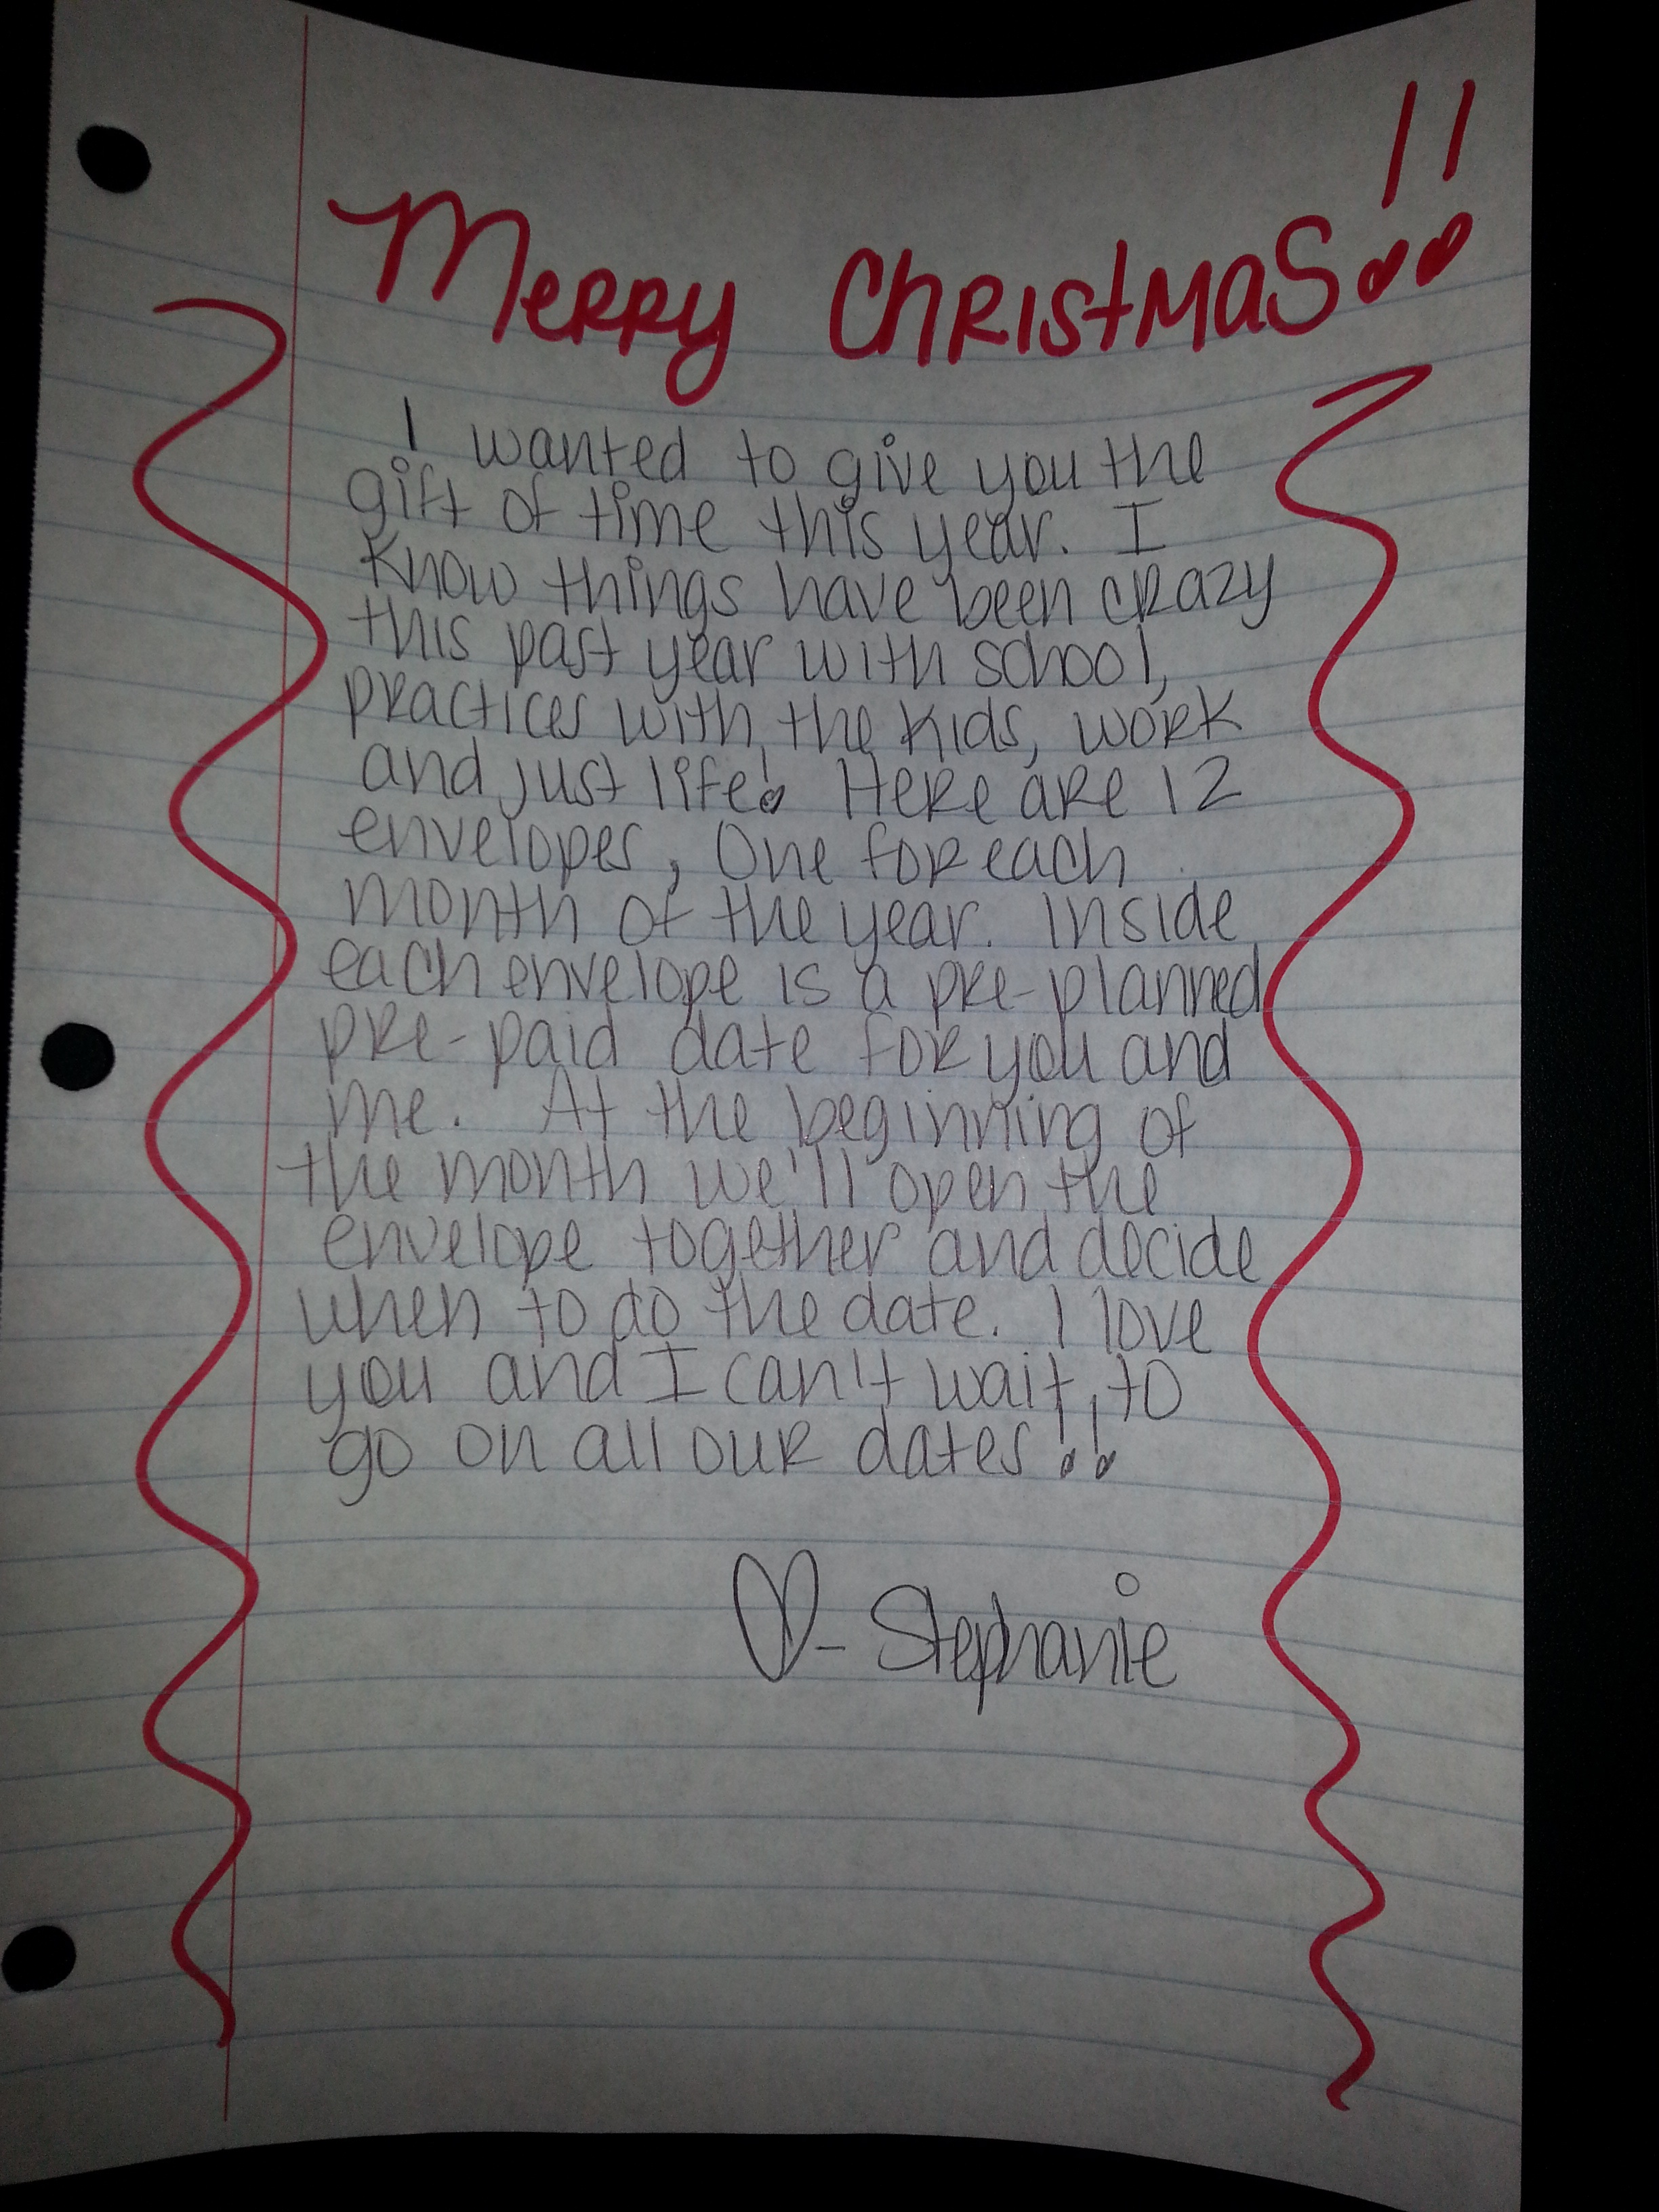 Merry Christmas!!
I wanted to give you the
gift of time this year. I
know things have been crazy
this past year with school,
practices with the kids, work
and just life! Here are 12
envelopes, One for each
month of the year. Inside
each envelope is a pre-planned
pre-paid date for you and
me. At the beginning of
the month we'll open the
envelope together and decide
when to do the date. I love
you and I can't wait to
go on all our dates!!
♡- Stephanie